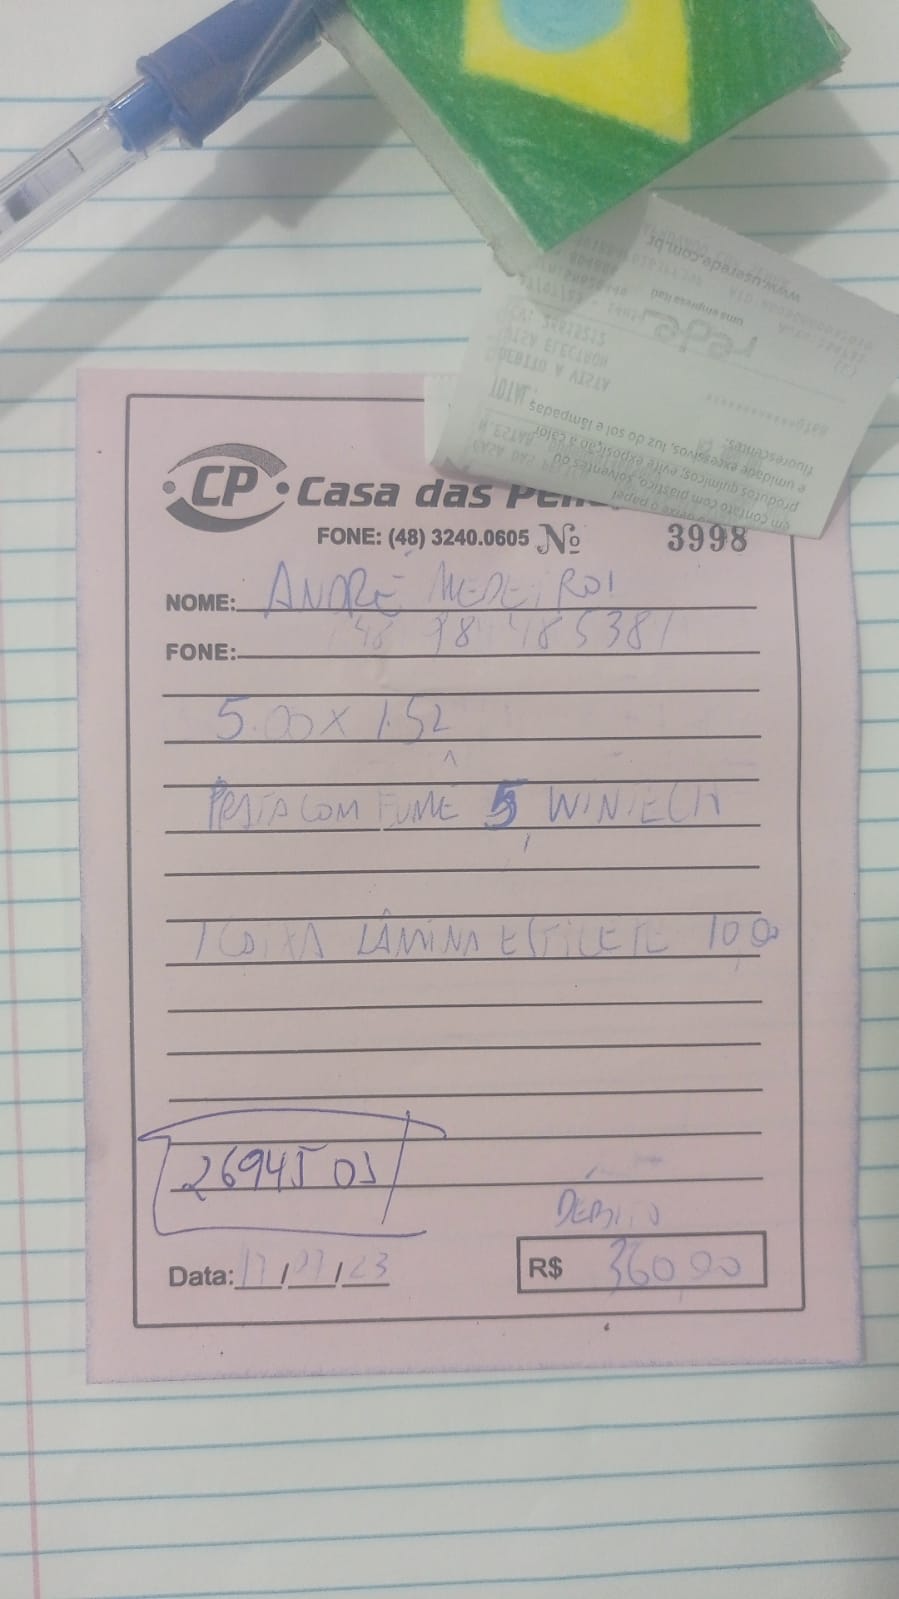 CP Casa das
FONE: (48) 3240.0605 Nº 3998
NOME: ANDRÉ MEDEIROS
FONE: 48 984485381
5.00 X 1.52
PRATA COM FUMÊ 5 WINTECH
1 CAIXA LÂMINA ESTILETE 10,00
26945 OS
DÉBITO
Data: 17/07/23 R$ 360,00
www.userede.com.br
rede
Uma empresa Itaú
VISA ELECTRON
DEBITO A VISTA
TOTAL:
fluorescentes.
e umidade excessivos, luz do sol e lâmpadas
produtos químicos; evite exposição a calor
em contato com plástico, solventes ou